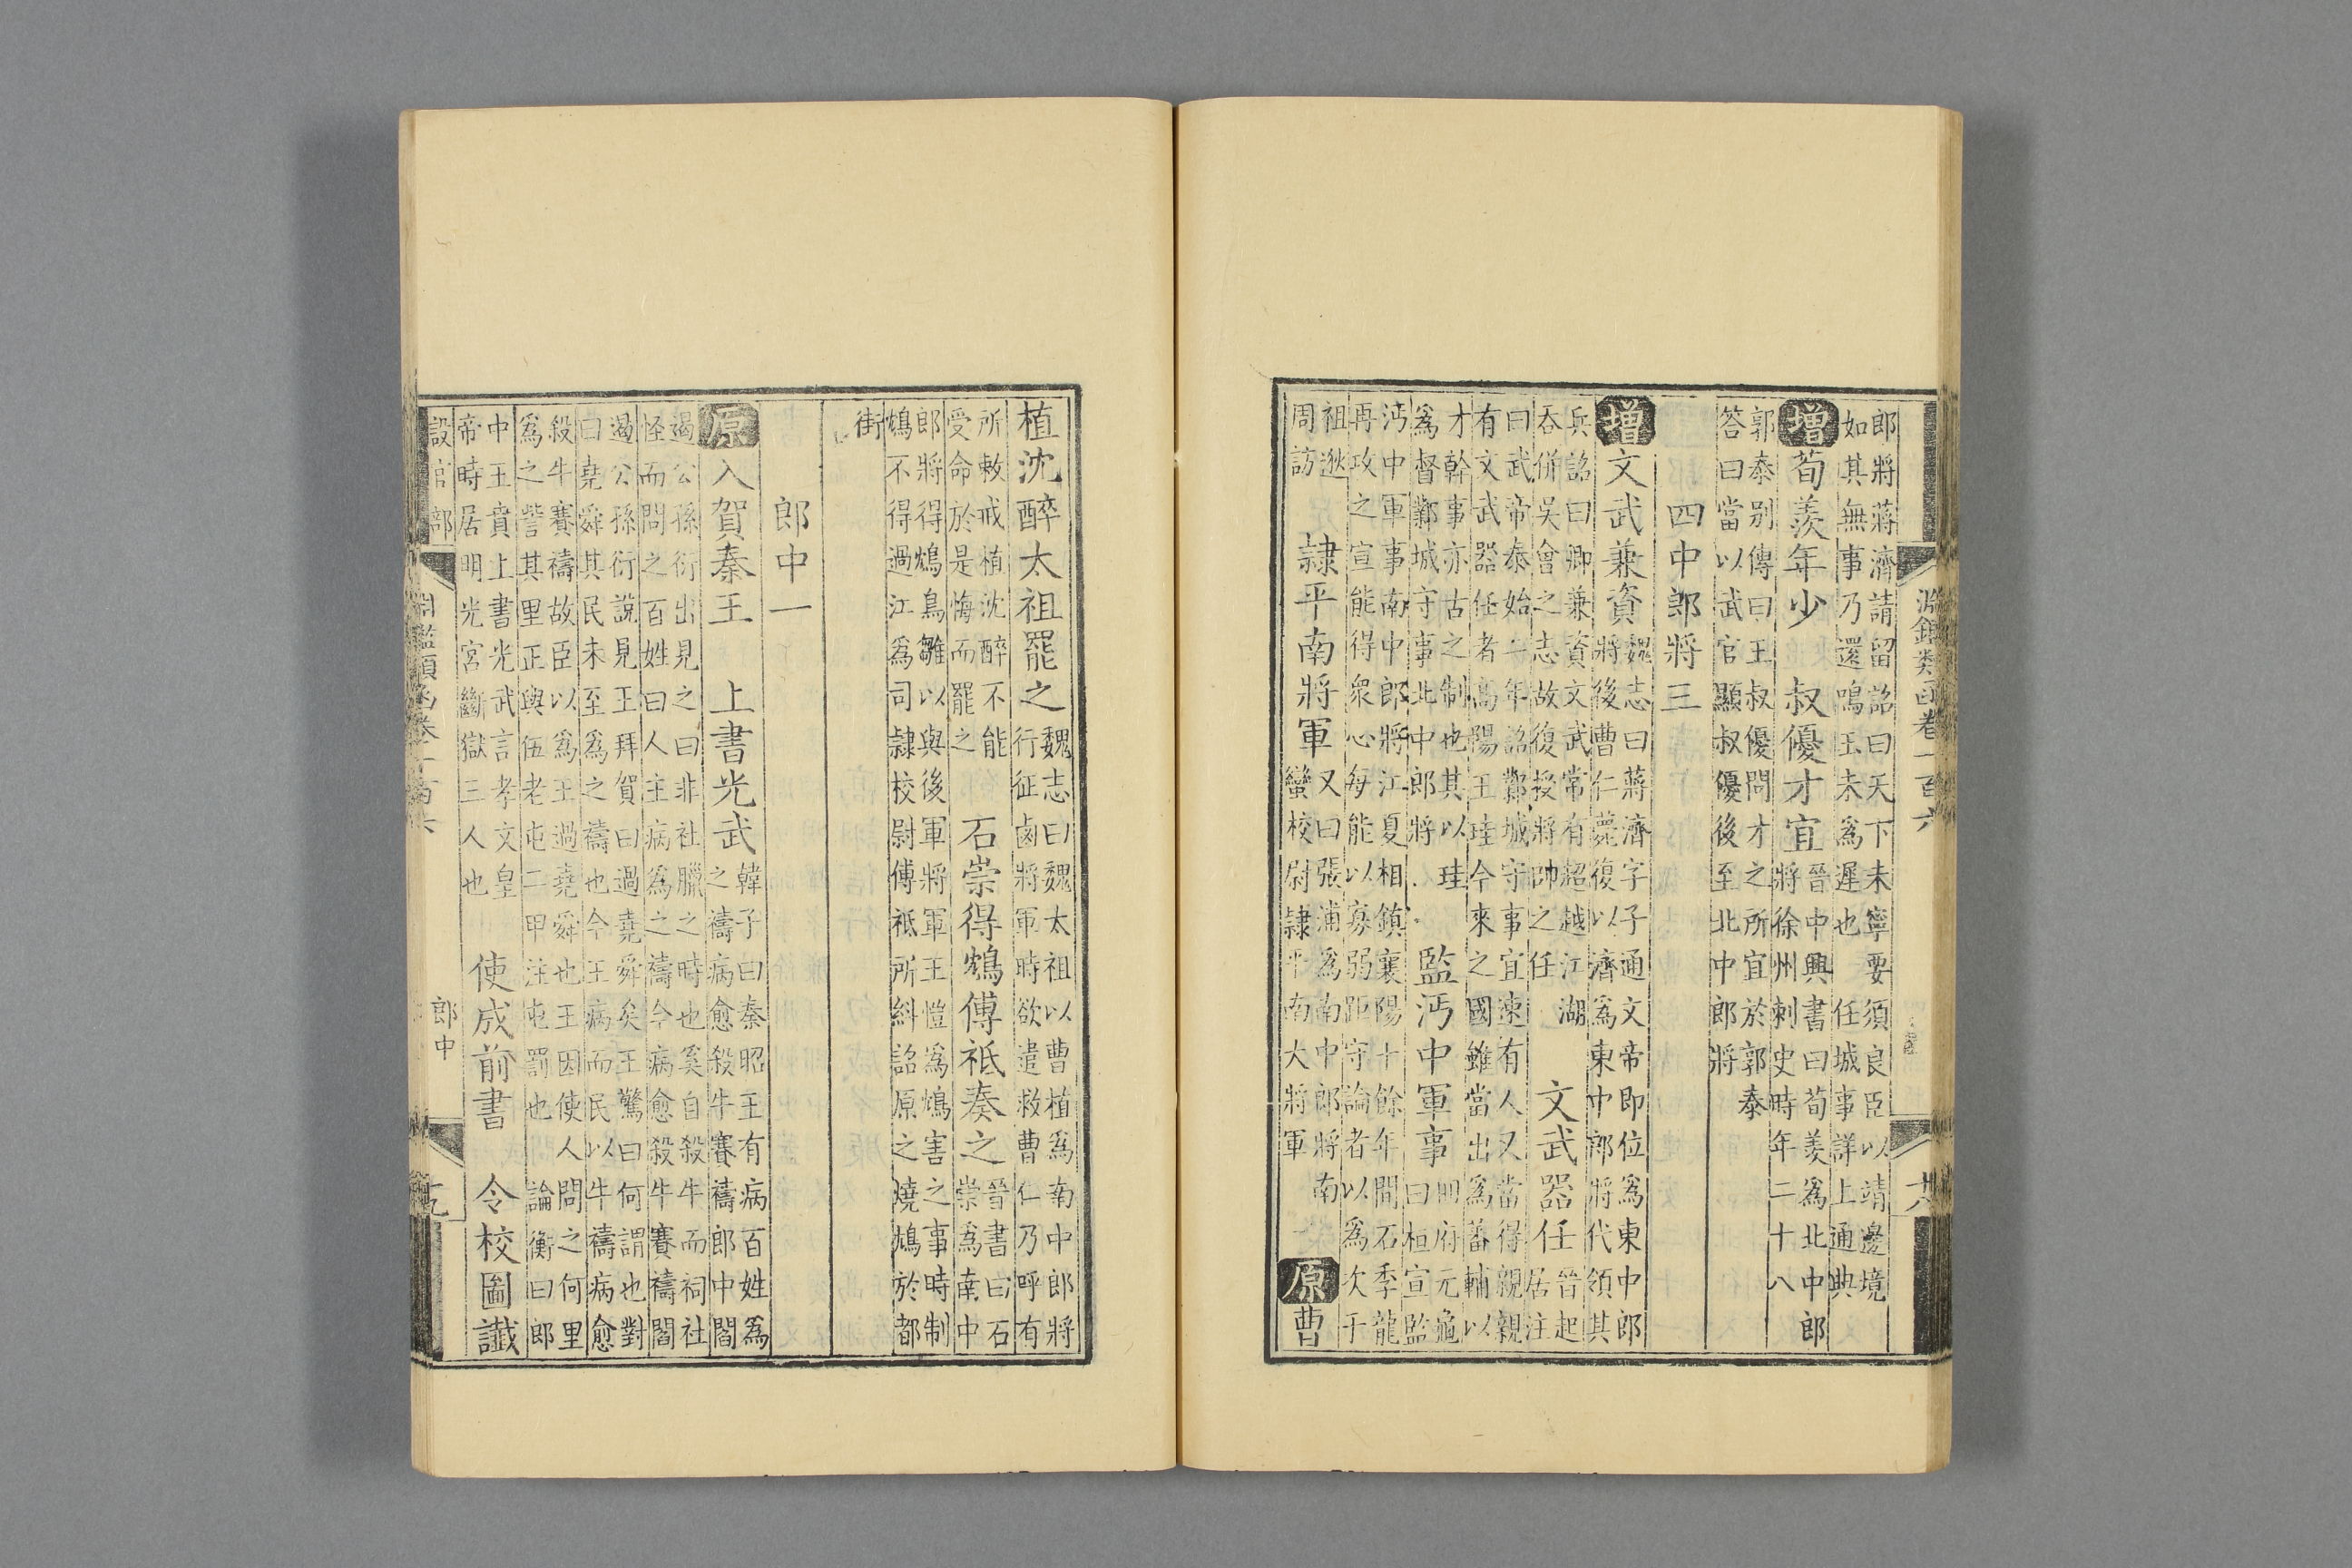 淵鑑類函卷一百六 十八
郎將蔣濟請留詔曰天下未寧要須良臣以靖邊境
如其無事乃還鳴玉未為遲也 任城事詳上通典
增荀羨年少 叔優才宜 晉中興書曰荀羨為北中郎
將徐州刺史時年二十八
郭泰別傳曰王叔優問才之所宜於郭泰
答曰當以武官顯叔優後至北中郎將
四中郎將三
增文武兼資 魏志曰蔣濟字子通文帝即位為東中郎
將後曹仁薨復以濟為東中郎將代領其
兵詔曰卿兼資文武常有超越江湖
吞併吳會之志故復授將帥之任 文武器任 晉起
居注
曰武帝泰始二年詔鄴城守事宜速有人又當得親親
有文武器任者高陽王珪今來之國雖當出為蕃輔以
才幹事亦古之制也其以珪
為督鄴城守事北中郎將 監沔中軍事 冊府元龜
曰桓宣監
沔中軍事南中郎將江夏相鎮襄陽十餘年間石季龍
再攻之宣能得眾心每能以寡弱距守論者以為次于
祖逖
周訪 隸平南將軍 又曰張浦為南中郎將南
蠻校尉隸平南大將軍 原曹
植沈醉太祖罷之 魏志曰魏太祖以曹植為南中郎將
行征鹵將軍時欲遣救曹仁乃呼有
所敕戒植沈醉不能
受命於是悔而罷之 石崇得鴆傅祗奏之 晉書曰石
崇為南中
郎將得鴆鳥雛以與後軍將軍王愷為鴆害之事時制
鴆不得過江為司隸校尉傅祗所糾詔原之燒鴆於都
街
郎中一
原入賀秦王 上書光武 韓子曰秦昭王有病百姓為
之禱病愈殺牛賽禱郎中閻
遏公孫衍出見之曰非社臘之時也奚自殺牛而祠社
怪而問之百姓曰人主病為之禱今病愈殺牛賽禱閻
遏公孫衍說見王拜賀曰過堯舜矣王驚曰何謂也對
曰堯舜其民未至為之禱也今王病而民以牛禱病愈
殺牛賽禱故臣以為王過堯舜也王因使人問之何里
為之訾其里正與伍老屯二甲注屯罰也 論衡曰郎
中王賁上書光武言孝文皇
帝時居明光宮斷獄三人也 使成前書 令校圖讖
設官部 淵鑑類函卷一百六 郎中